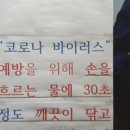 "코로나 바이러스"
예방을 위해 손을
흐르는 물에 30초
정도 깨끗이 닦고